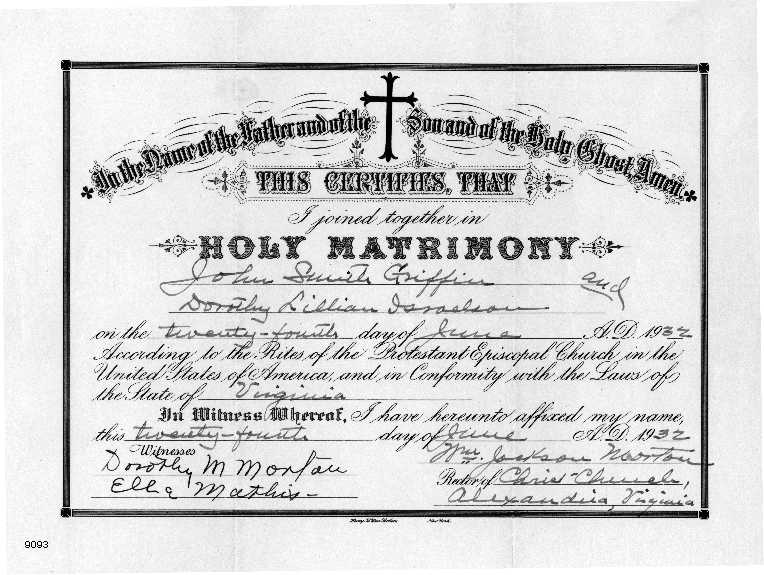 In the Name of the Father and of the Son and of the Holy Ghost, Amen.
THIS CERTIFIES, THAT
I joined together in
HOLY MATRIMONY
John Smith Griffin and
Dorothy Lillian Israelson
on the twenty-fourth day of June A.D. 1932
According to the Rites of the Protestant Episcopal Church in the
United States of America, and in Conformity with the Laws of
the State of Virginia
In Witness Whereof, I have hereunto affixed my name,
this twenty-fourth day of June A.D. 1932
Witnesses Wm. Jackson Morton
Dorothy M Morton Rector of Christ Church,
Ella Mathis Alexandria, Virginia
New York.
9093